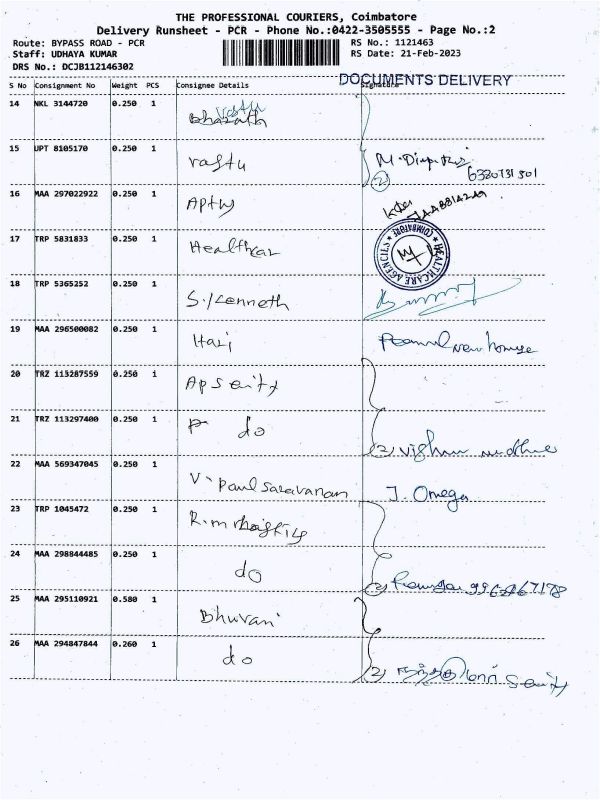 THE PROFESSIONAL COURIERS, Coimbatore
Delivery Runsheet - PCR - Phone No.:0422-3505555 - Page No.:2
Route: BYPASS ROAD - PCR RS No.: 1121463
Staff: UDHAYA KUMAR RS Date: 21-Feb-2023
DRS No.: DCJB112146302
DOCUMENTS DELIVERY
S No Consignment No Weight PCS Consignee Details Signature
14 NKL 3144720 0.250 1 Bharath
15 UPT 8105170 0.250 1 vastu
(2)
16 MAA 297022922 0.250 1
17 TRP 5831833 0.250 1 Healthcar
HEALTHCARE AGENCIES COIMBATORE
18 TRP 5365252 0.250 1 S. Kenneth
19 MAA 296500082 0.250 1 Hari
20 TRZ 113287559 0.250 1
21 TRZ 113297400 0.250 1 do
(2) Vishnu
22 MAA 569347045 0.250 1 V. Paul Saravanan J. Omega
23 TRP 1045472 0.250 1 R.m
24 MAA 298844485 0.250 1 do
(2)
25 MAA 295110921 0.580 1 Bhuvani
26 MAA 294847844 0.260 1 do
(2)